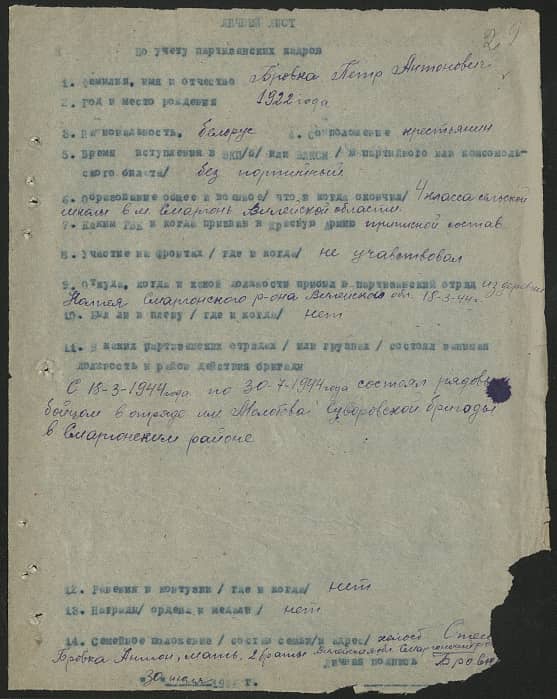 ЛИЧНЫЙ ЛИСТ
29
по учету партизанских кадров
1. Фамилия, имя и отчество Бровка Петр Антонович
2. Год и место рождения 1922 года
3. Национальность, белорус 4. Соцположение крестьянин
5. Время вступления в ВКП/б/ или ВЛКСМ / № партийного или комсомоль-
ского билета/ без партийный
6. Образование общее и военное/ что и когда окончил/ 4 класса сельской
школы в м. Сморгонь Вилейской области
7. Каким РВК и когда призван в Красную Армию приписной состав
8. Участие на фронтах / где и когда/ не учавствовал
9. Откуда, когда и какой должности прибыл в партизанский отряд из деревни
Сморгонского р-она Вилейской обл. 18-3-44г.
10. Был ли в плену / где и когда/ нет
11. В каких партизанских отрядах / или группах / состоял занимая
должность и район действия бригады
С 18-3-1944 года по 30-7-1944 года состоял рядовым
бойцом в отряде им Молотова Суворовской бригады
в Сморгонским районе
12. Ранения и контузии / где и когда/ нет
13. Награды/ ордена и медали / нет
14. Семейное положение / состав семьи/и адрес/ холост
Бровка Антон, мать, 2 браты
Личная подпись Бровк
30 июля г.